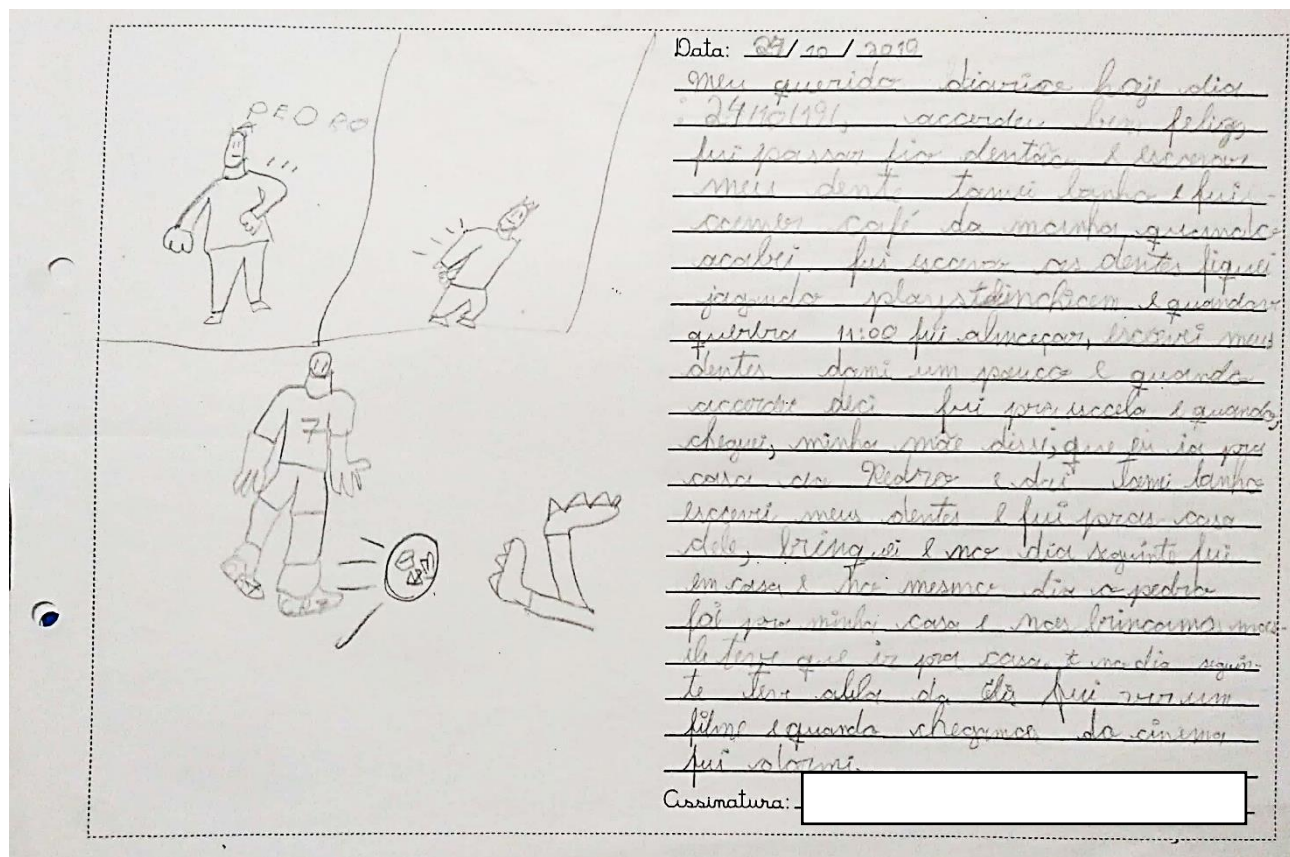 PEDRO
7
Data: 24/10/2019
Meu querido diarioe hoje dia
24/10/19, acordei bem felize,
fui passar fio dentão e escovar
meus dente tomei banho e fui
coemer café da manha quando
acabei fui escovar os dentes fiquei
jogando e quandor
11:00 fui almoçar, escovei meus
dentes domi um pouco e quando
acordei deci fui pra escola e quando,
cheguei, minha mãe disse, que eu ia pra
casa do Pedro e dai tomei banho
escovei meus dentes e fui pras casa
dele, brinquei e no dia seguinte fui
em casa e no mesmo dia o pedro
foi pra minha casa e nos brincamos mas
ele teve que ir pra casa. E no dia seguin-
te teve fui ver um
filme e quando chegamos do cinema
fui dormi.
Assinatura: